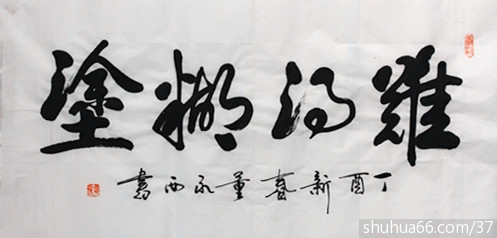 難得糊塗
丁酉新春董永西書
shuhua66.com/37